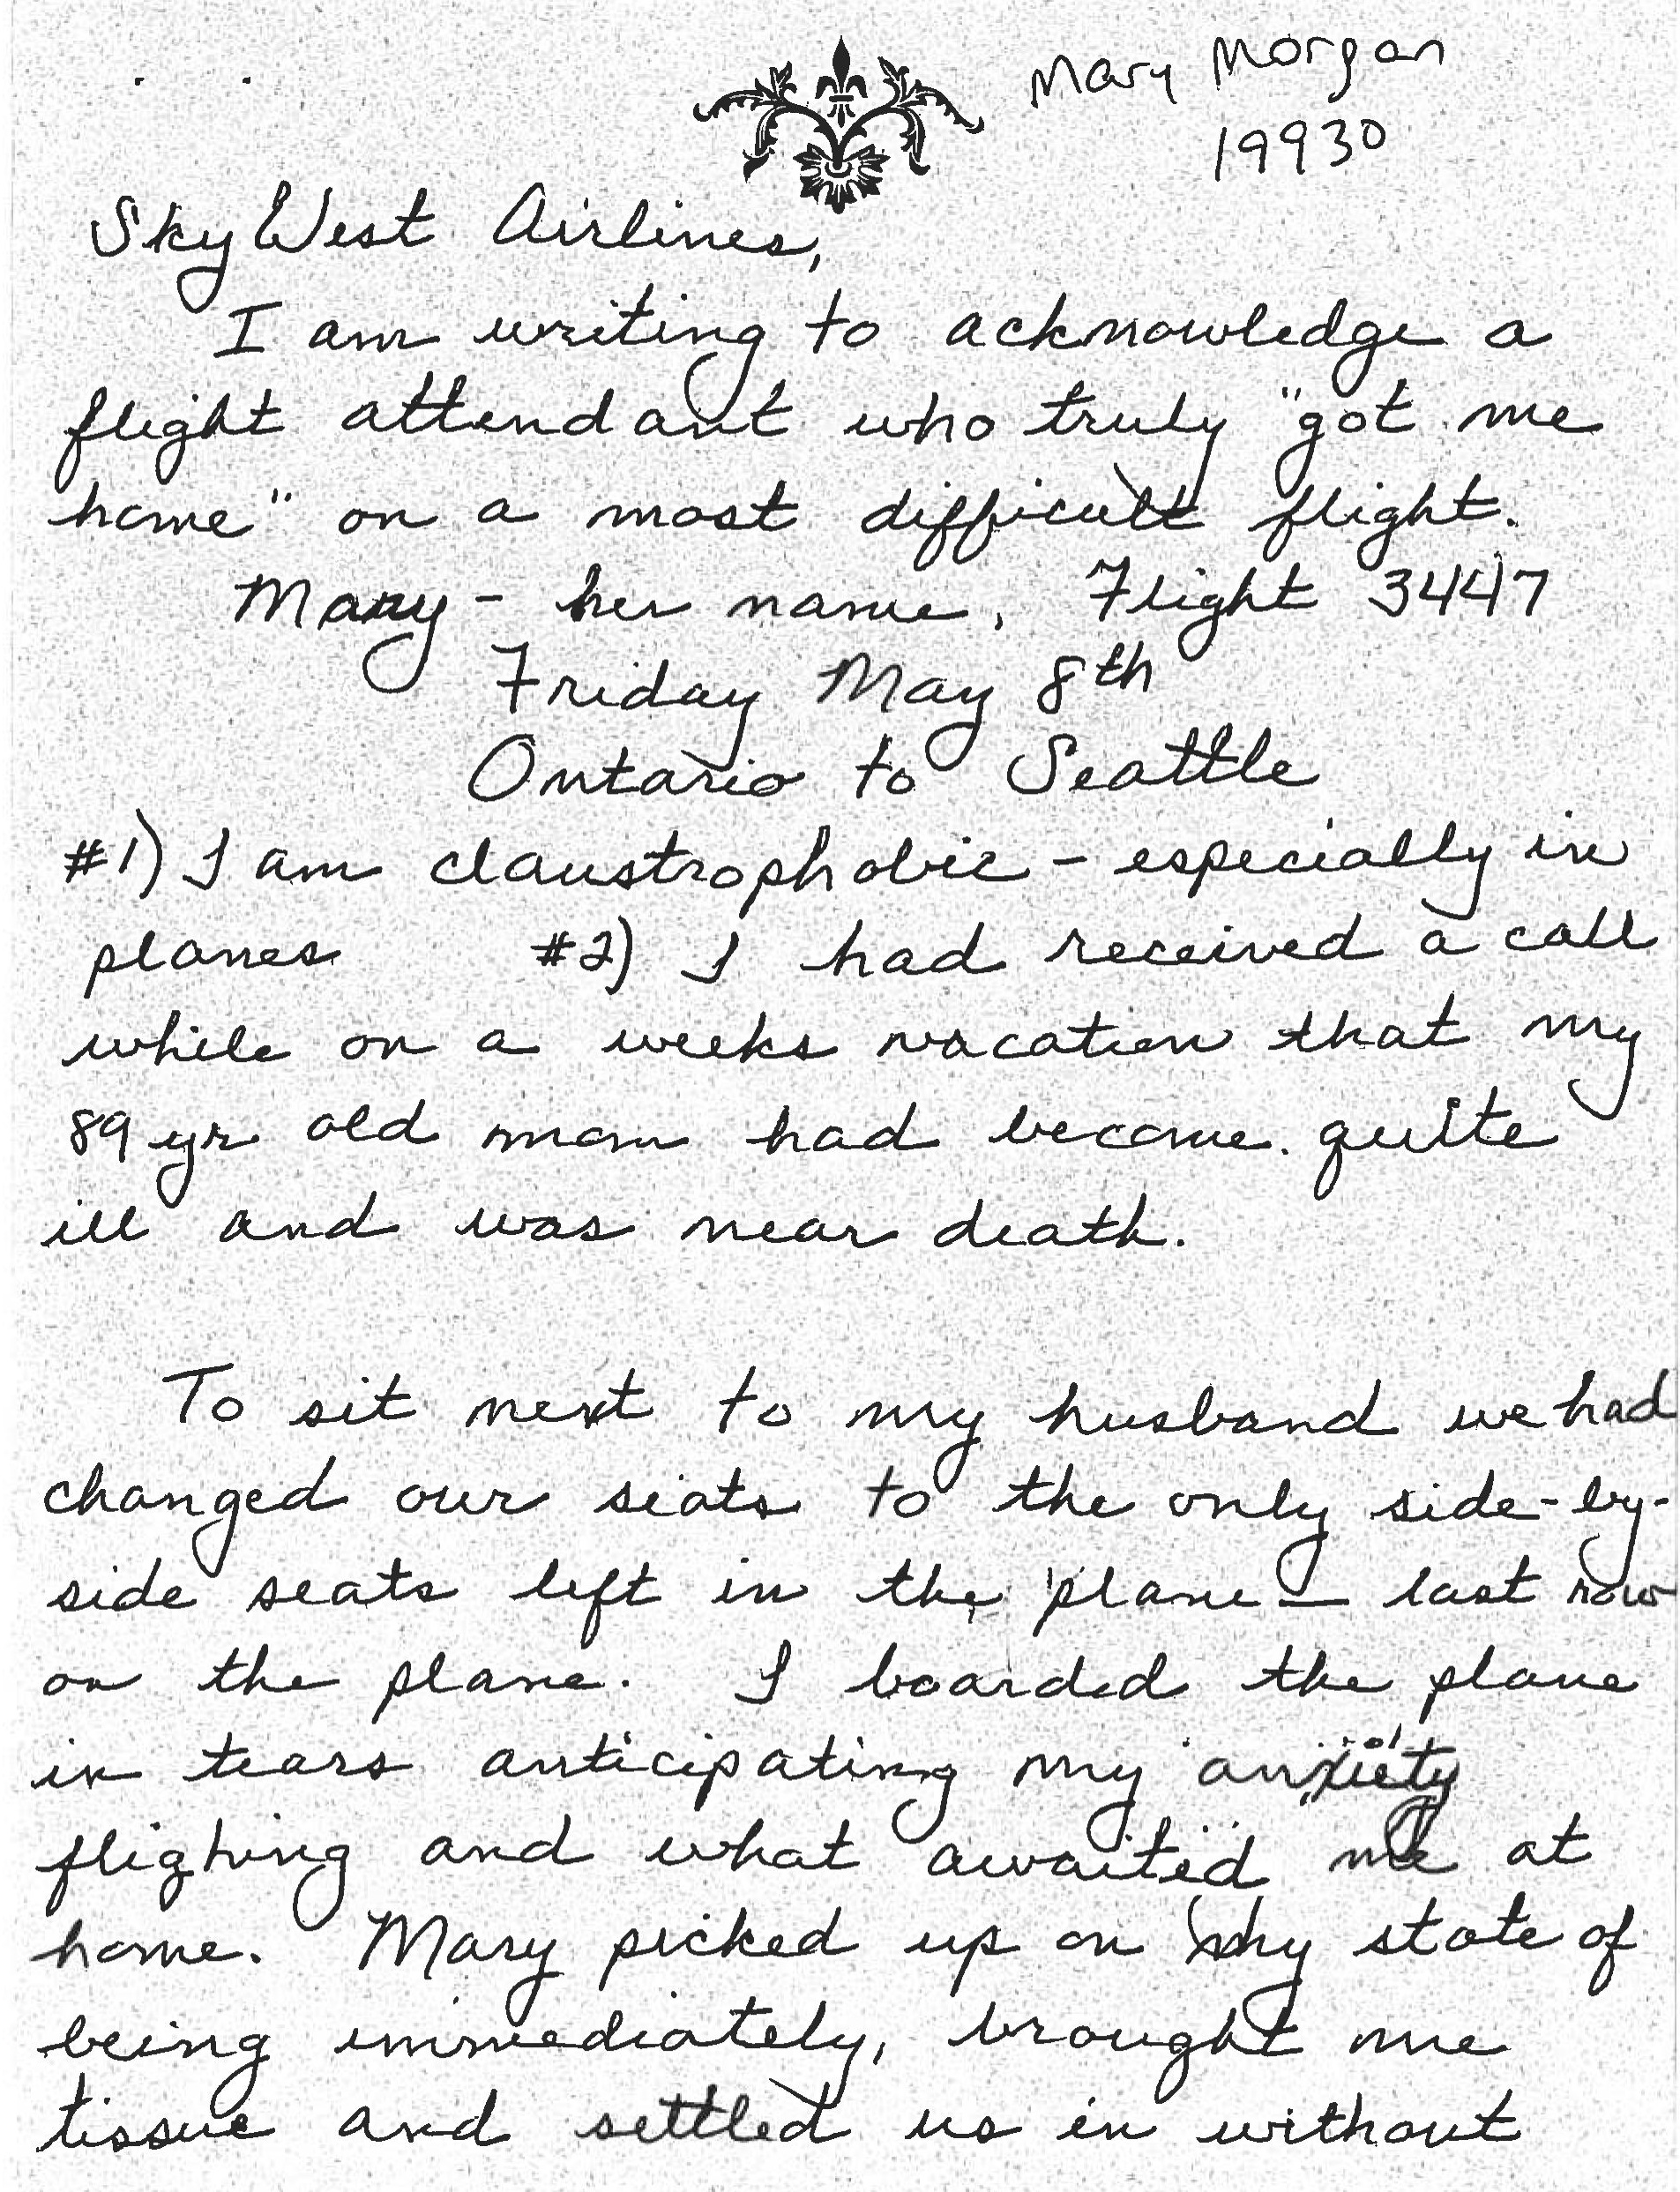 Mary Morgan
19930
SkyWest Airlines,
I am writing to acknowledge a
flight attendant who truly "got me
home" on a most difficult flight.
Mary - her name, Flight 3447
Friday May 8th
Ontario to Seattle
#1) I am claustrophobic - especially in
planes #2) I had received a call
while on a weeks vacation that my
89 yr old mom had become quite
ill and was near death.
To sit next to my husband we had
changed our seats to the only side-by-
side seats left in the plane - last row
on the plane. I boarded the plane
in tears anticipating my anxiety
flighing and what awaited me at
home. Mary picked up on my state of
being immediately, brought me
tissue and settled us in without